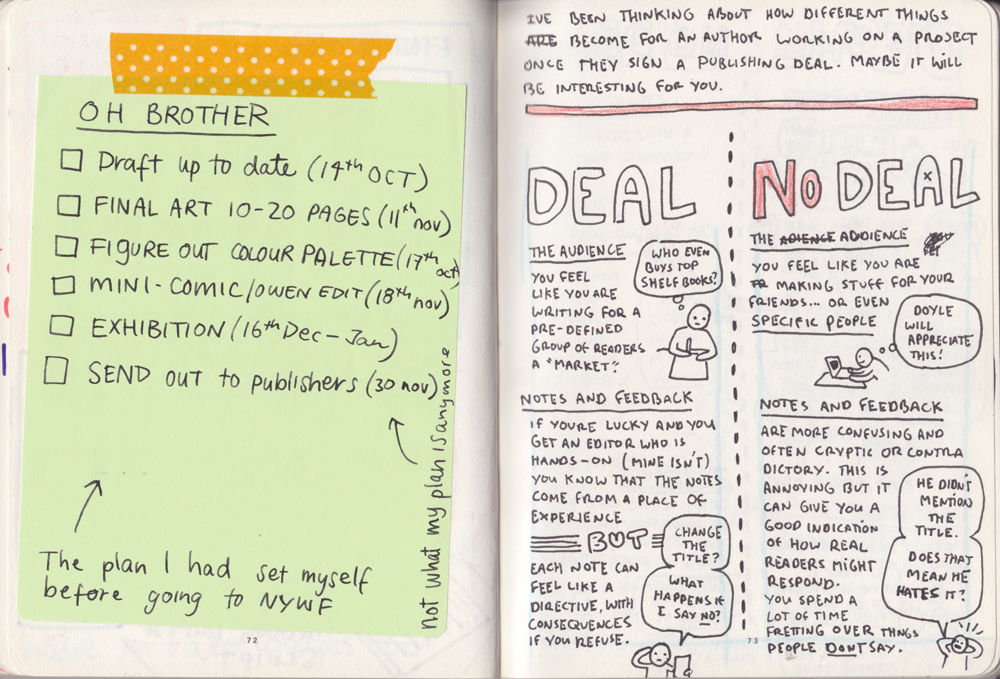 OH BROTHER
Draft up to date (14th OCT)
FINAL ART 10-20 PAGES (11th nov)
FIGURE OUT COLOUR PALETTE (17th oct)
MINI-COMIC/OWEN EDIT (18th nov)
EXHIBITION (16th Dec - Jan)
SEND OUT to publishers (30 nov)
not what my plan is anymore
The plan I had set myself
before going to NYWF
72
IVE BEEN THINKING ABOUT HOW DIFFERENT THINGS
ARE BECOME FOR AN AUTHOR WORKING ON A PROJECT
ONCE THEY SIGN A PUBLISHING DEAL. MAYBE IT WILL
BE INTERESTING FOR YOU.
DEAL
THE AUDIENCE
YOU FEEL
LIKE YOU ARE
WRITING FOR A
PRE-DEFINED
GROUP OF READERS
A "MARKET?"
WHO EVEN
BUYS TOP
SHELF BOOKS?
NOTES AND FEEDBACK
IF YOURE LUCKY AND YOU
GET AN EDITOR WHO IS
HANDS-ON (MINE ISN'T)
YOU KNOW THAT THE NOTES
COME FROM A PLACE OF
EXPERIENCE
BUT
EACH NOTE CAN
FEEL LIKE A
DIRECTIVE, WITH
CONSEQUENCES
IF YOU REFUSE.
CHANGE
THE
TITLE?
WHAT
HAPPENS IF
I SAY NO?
NO DEAL
THE ADIENCE AUDIENCE
YOU FEEL LIKE YOU ARE
MAKING STUFF FOR YOUR
FRIENDS... OR EVEN
SPECIFIC PEOPLE
DOYLE
WILL
APPRECIATE
THIS!
NOTES AND FEEDBACK
ARE MORE CONFUSING AND
OFTEN CRYPTIC OR CONTRA
DICTORY. THIS IS
ANNOYING BUT IT
CAN GIVE YOU A
GOOD INDICATION
OF HOW REAL
READERS MIGHT
RESPOND.
YOU SPEND A
LOT OF TIME
FRETTING OVER THINGS
PEOPLE DONT SAY.
HE DIDN'T
MENTION
THE
TITLE.
DOES THAT
MEAN HE
HATES IT?
73